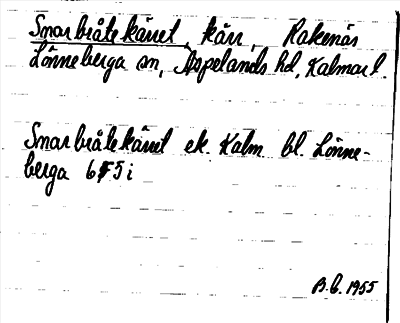 Snarbråtekärret, kärr, Rakenäs
Lönneberga sn, Aspelands hd, Kalmar l.
Snarbråtekärret ek. Kalm. bl. Lönne-
berga 6F5i
B.E. 1955